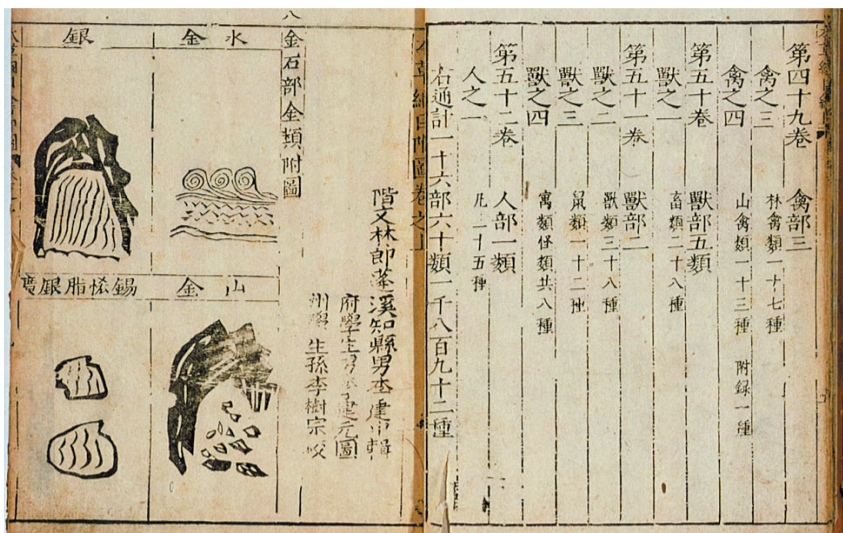 第四十九卷 禽部三
禽之三 林禽類一十七種
禽之四 山禽類一十三種 附録一種
第五十卷 獸部五類
獸之一 畜類二十八種
第五十一卷 獸部二
獸之二 獸類三十八種
獸之三 鼠類一十二種
獸之四 寓類怪類共八種
第五十二卷 人部一類
人之一 凡三十五種
右通計一十六部六十類一千八百九十二種
本草綱目附圖卷之上
階文林郎蓬溪知縣男李建中輯
府學生男李建元圖
州學生孫李樹宗校
金石部金類附圖
水金
山金
銀
錫恡脂銀礦